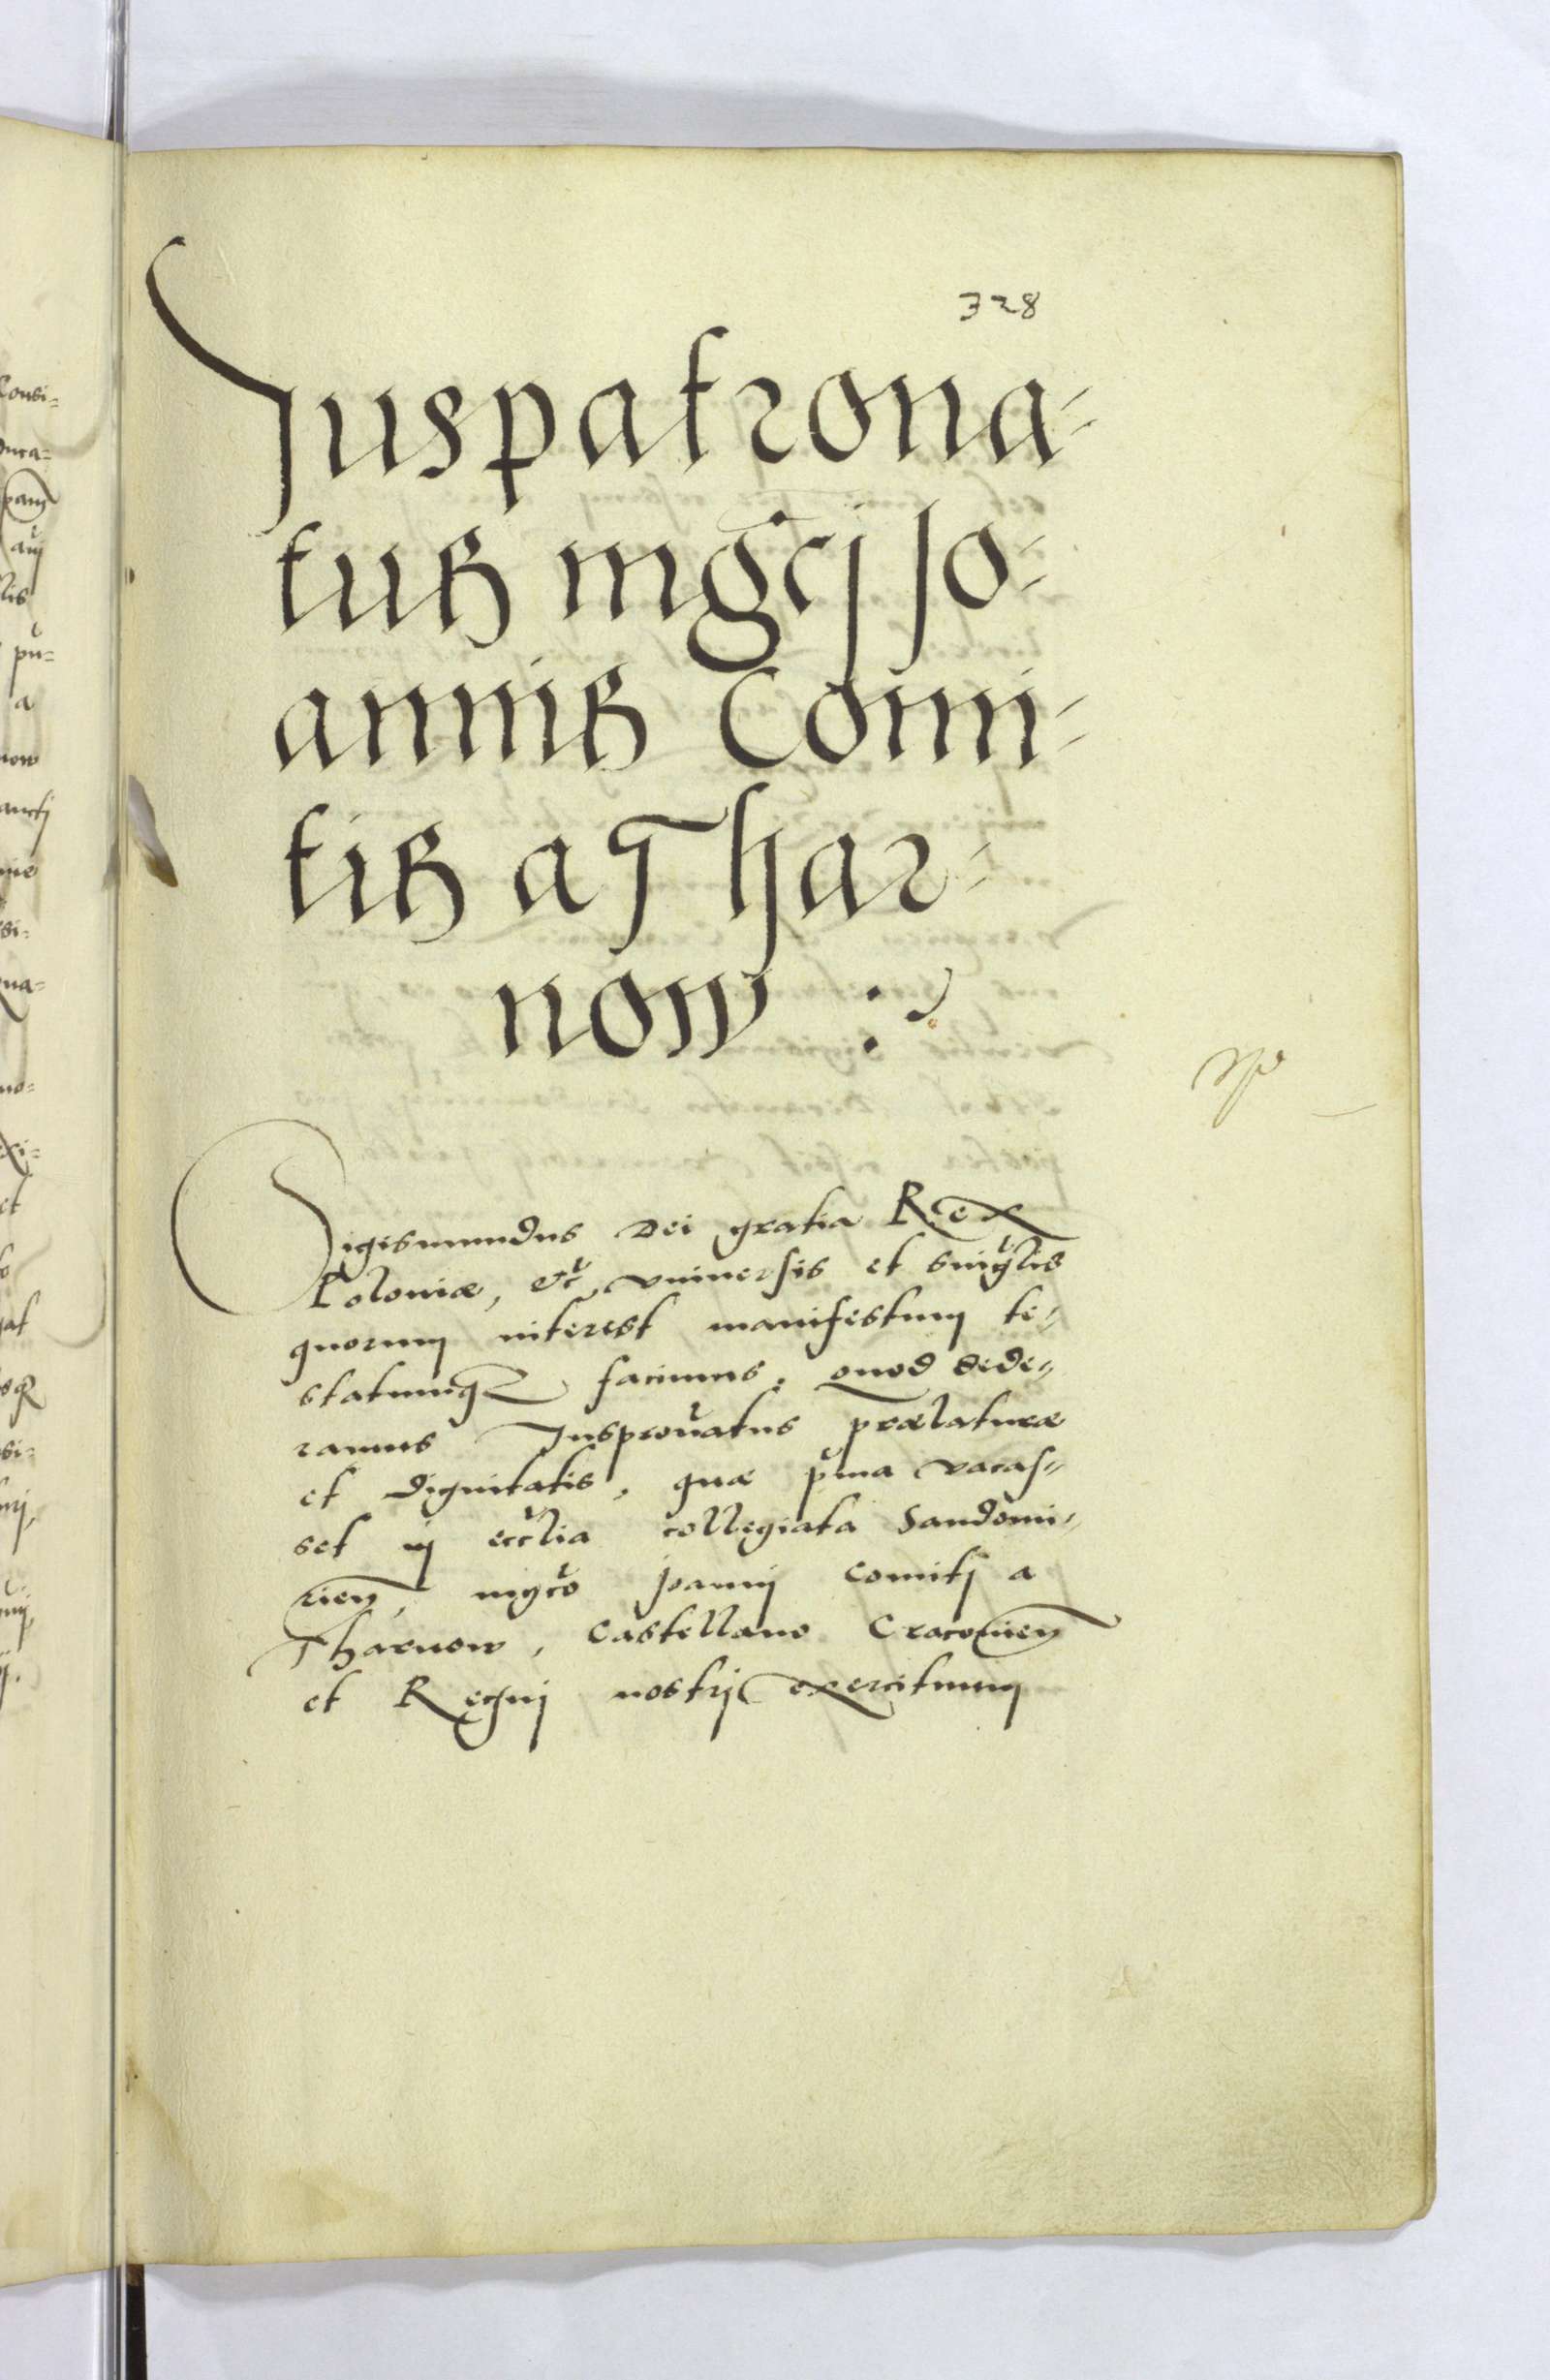 328
Juspatrona=
tus mgci Jo=
annis Comi=
tis a Thar=
now :
Sigismundus Dei gratia Rex
Poloniæ, etc, vniuersis et singlis
quorum interest manifestum te=
statumq facimus. quod dede=
ramus Juspronatus prælaturæ
et dignitatis, quæ pma vacas=
set in ecclia collegiata Sandomi=
rien, mgco Joanni comiti a
Tharnow, Castellano Cracouien
et Regni nostri exercituum